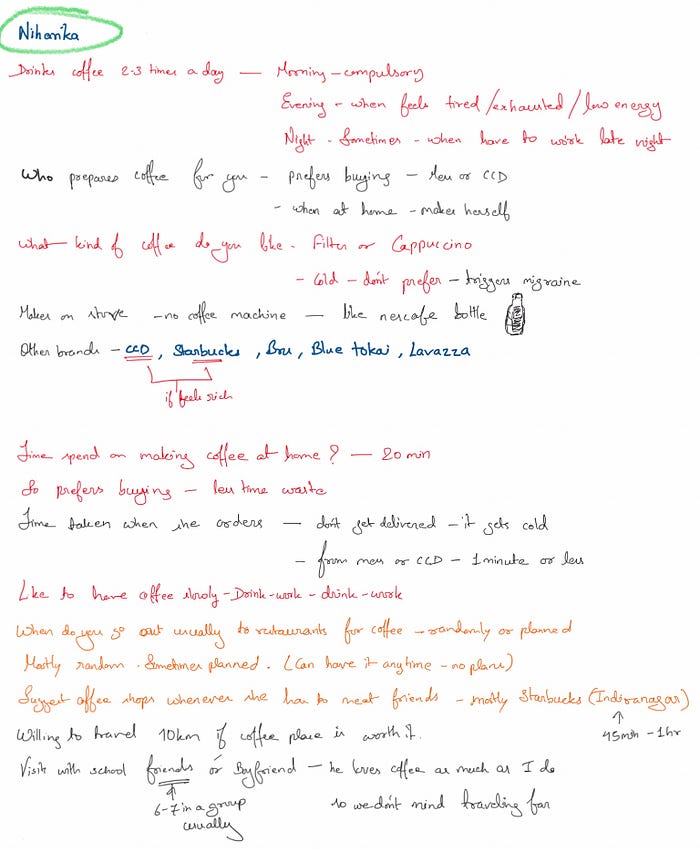 Niharika
Drinks coffee 2-3 times a day — Morning - compulsory
Evening - when feels tired / exhausted / low energy
Night - Sometimes - when have to work late night
Who prepares coffee for you - prefers buying - Mess or CCD
- when at home - makes herself
What kind of coffee do you like - Filter or Cappuccino
- Cold - don't prefer - triggers migraine
Makes on stove - no coffee machine — like nescafe bottle
Other brands - CCD, Starbucks, Bru, Blue tokai, Lavazza
if feels rich
Time spend on making coffee at home? — 20 min
So prefers buying - less time waste
Time taken when she orders — don't get delivered - it gets cold
- from mess or CCD - 1 minute or less
Like to have coffee slowly - Drink - work - drink - work
When do you go out usually to restaurants for coffee - randomly or planned
Mostly random. Sometimes planned. (Can have it anytime - no plans)
Suggest coffee shops whenever she has to meet friends - mostly Starbucks (Indiranagar)
Willing to travel 10km if coffee place is worth it.
45min - 1hr
Visit with school friends or Boyfriend - he loves coffee as much as I do
6-7 in a group
usually
so we don't mind traveling far